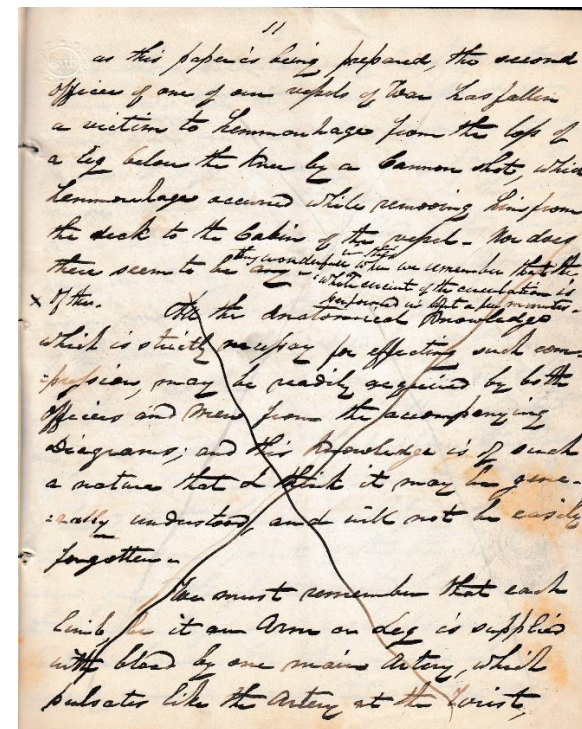 11
as this paper is being prepared, the second
officer of one of our vessels of War has fallen
a victim to hemmorrhage from the loss of
a leg below the knee by a Cannon shot, which
hemmorrhage occurred while removing him from
the deck to the Cabin of the vessel. Nor does
there seem to be any thing wonderful in this when we remember that the
whole circuit of the circulation is
performed in but a few minutes.
x Of the.
All the Anatomical Knowledge
which is strictly necessary for effecting such com-
-pression, may be readily acquired by both
Officers and Men from the accompanying
Diagrams; and this Knowledge is of such
a nature that I think it may be gene-
-rally understood, and will not be easily
forgotten.
We must remember that each
limb, be it an Arm or Leg is supplied
with blood by one main Artery, which
pulsates like the Artery at the Wrist,